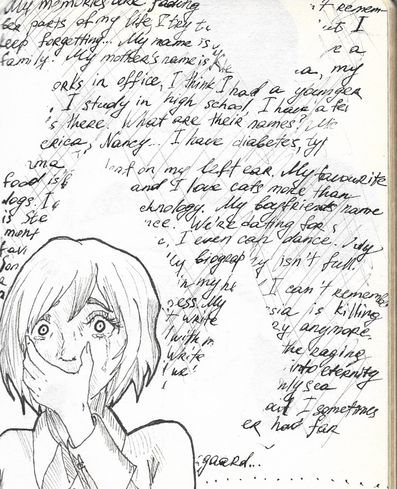 My memories are fading
't remem-
ber parts of my life I try t
't I
eep forgetting... My name is
e a
family. My mother's name is
a, my
orks in office, I think I had a younger
I study in high school. I have a fe
's there. What are their names?
erica, Nancy... I have diabetes, ty
ma
eaf on my left ear. My favourite
food is
and I love cats more than
dogs. I
chnology. My boyfriend's name
is Ste
nce. We're dating for
mont
c, I even can dance. My
favo
y biograp y isn't full.
in my h
I can't remember
ess. My
sia is killing
t write
ry anymore.
with m
the raging
Write
into eternity
nly sea
and I sometimes
er how far
gaard...